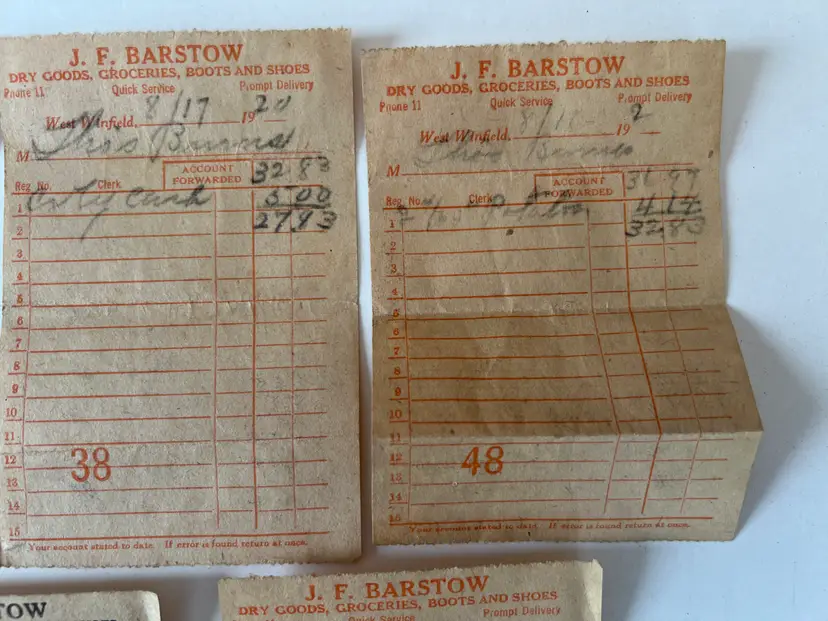 J. F. BARSTOW
DRY GOODS, GROCERIES, BOOTS AND SHOES
Phone 11 Quick Service Prompt Delivery
West Winfield, 8/17 1920
M Thos Burns
ACCOUNT FORWARDED 32 83
Reg. No. Clerk
1 By Cash 5 00
2 27 83
3
4
5
6
7
8
9
10
11
12
13
14
15
38
Your account stated to date. If error is found return at once.
J. F. BARSTOW
DRY GOODS, GROCERIES, BOOTS AND SHOES
Phone 11 Quick Service Prompt Delivery
West Winfield, 8/1 192
M Thos Burns
ACCOUNT FORWARDED
Reg. No. Clerk
1
2 32.83
3
4
5
6
7
8
9
10
11
12
13
14
15
48
Your account stated to date. If error is found return at once.
TOW
J. F. BARSTOW
DRY GOODS, GROCERIES, BOOTS AND SHOES
Quick Service Prompt Delivery